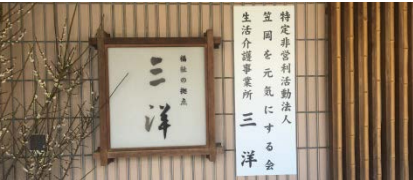 福祉の拠点
三洋
特定非営利活動法人
笠岡を元気にする会
生活介護事業所 三洋